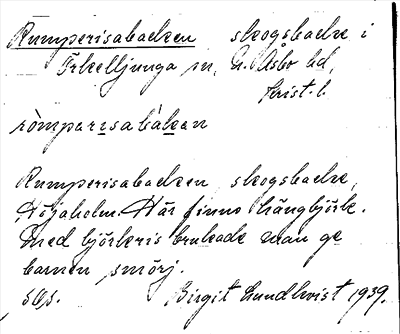 Rumperisabacken skogsbacke i
Örkelljunga sn, N. Åsbo hd,
Krist. l.
ròmparisabàkæn
Rumperisabacken, skogsbacke,
Höjaholm. Här finns hängbjörk.
Med björkris brukade man ge
barnen smörj.
Birgit Lundkvist 1939.